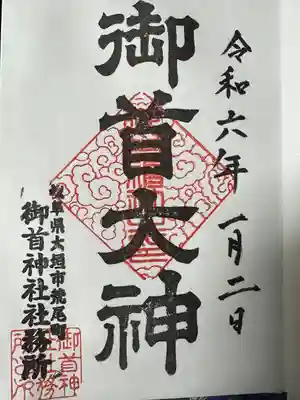 令和六年一月二日
御首大神
岐阜県大垣市荒尾町
御首神社社務所